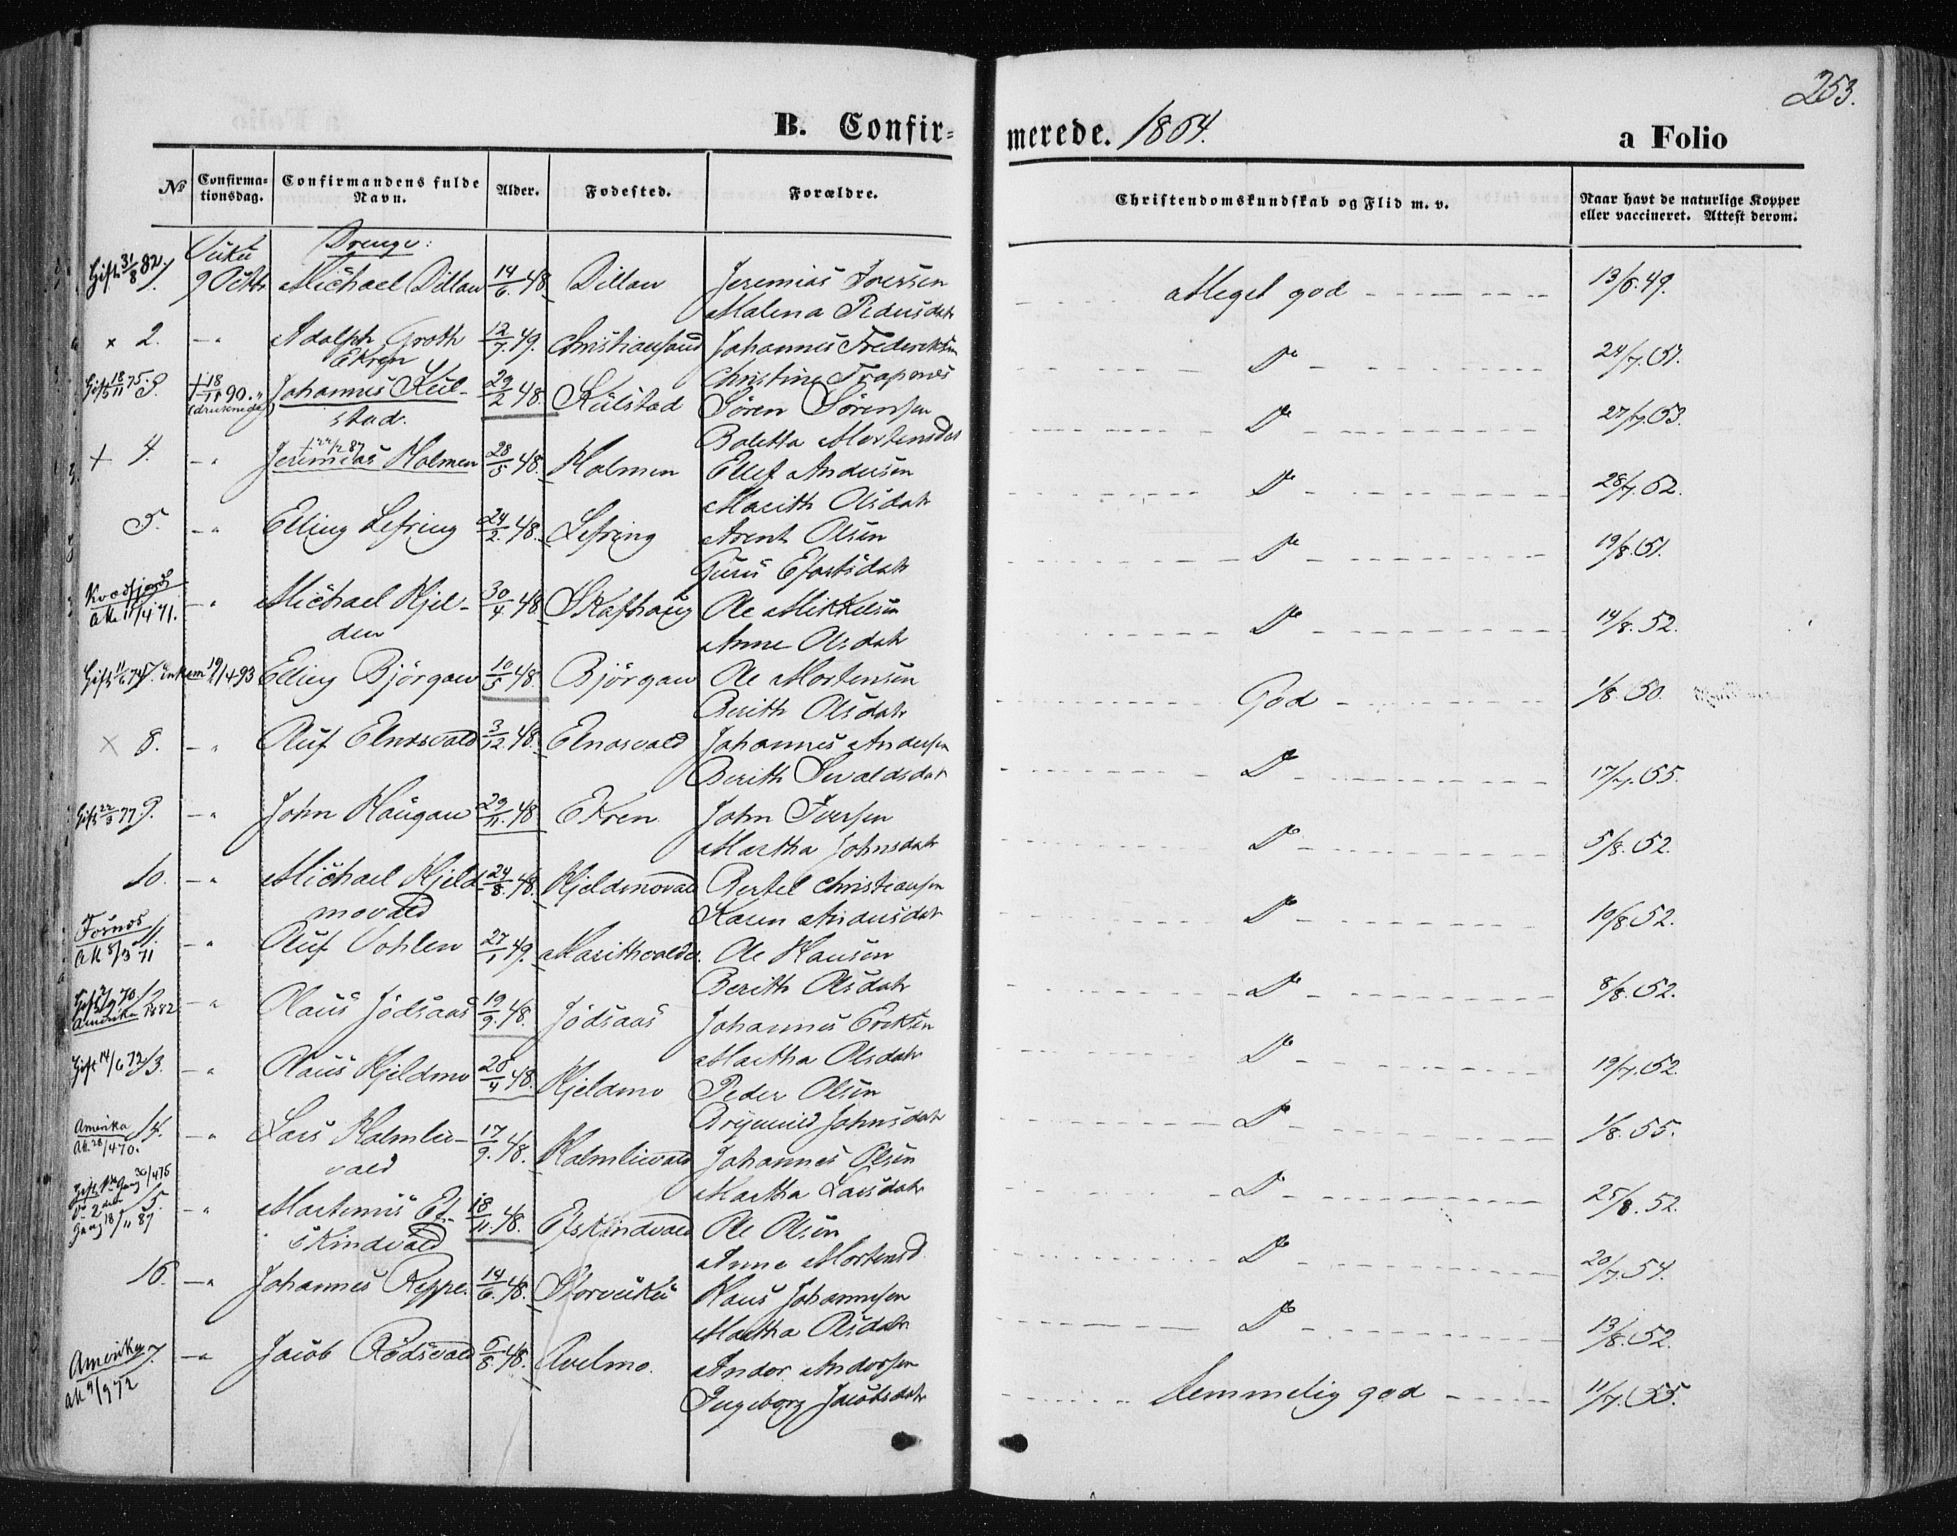 253.
B. Confirmerede. 1864.
a Folio
No
Confirmationsdag.
Confirmandens fulde Navn.
Alder.
Fødested.
Forældre.
Christendomskundskab og Flid m. v.
Naar havt de naturlige Kopper eller vaccineret. Attest derom.
Drenge:
Gift 31/8 82 1. 9 Octbr Michael Dillan 14/6 48. Dillan Jeremias Iversen
Malena Pedersdatr
Meget god 13/6. 49.
× 2. — " Adolph Groth 12/7 49. Christiansund Johannes Frederiksen
Ekren Christine
D°
Gift 18/11 75. 3. † 18/11 90. " Johannes Kül- 29/2 48. Külstad Sören Sörensen
(druknede) stad. Boletta Mortensdtr
D° 27/7. 53.
+ 4. — " Jeremias Holmen 28/5 48. Holmen Ellef Andersen
Marith Olsdatr
D° 28/7. 52.
5. — " Elling Lefring 24/2. 48. Lefring Arent Olsen
Guru
D° 19/8. 51.
ak 11/4 71. — " Michael Kjel- 30/4 48. Skafhaug Ole Mikkelsen
den Anne Olsdatr
D° 14/8. 52.
Elling Björgan 10/5 48. Björgan Ole Mortensen
Berith Olsdatr
God 1/8. 50.
× 8. — " Oluf Elnesvald 3/12. 48. Elnesvald Johannes Andersen
Berith Sivaldsdatr
D° 17/7. 55.
Gift 22/3 77 9. — " John Haugan 29/11. 48 Ekren John Iversen
Martha Johnsdatr
D° 5/8. 52.
10. — " Michael Kjeld- 24/8. 48. Kjeldmovald Bertel Christiansen
movald Karen
D° 19/8. 52.
ak 8/3 71 11. — " Oluf Vohlen 27/1 49. Marithvolden. Ole Hansen
Berith Olsdatr
D° 8/8. 52.
Amerika 1882 12. — " Claus Jödsaas 19/9. 48. Jödsaas Johannes Eriksen
Martha Olsdatr
D° 19/7. 52.
Gift 14/6 72 13. — " Claus Kjeldmo 28/4 48. Kjeldmo Peder Olsen
Johnsdatr
D° 1/8. 55.
Amerika
Ak. 28/4 70. 14. — " Lars Halmlie- 17/9. 48. Halmlievald Johannes Olsen
vald Martha Larsdatr
D° 25/8. 52.
15. — " Martinus Ef- 18/11. 48. Efskindvald Ole Olsen
skindvald Anne Mortensd
D° 20/7. 54.
16. — " Johannes Reppe. 14/6. 48. Storvuku Hans Johannesen
Martha Olsdatr
D° 13/8. 52.
Amerika 17. — " Jacob Rödsvald 6/8. 48. Avelmo. Andor Andersen
ak 9/9 72 Ingeborg Jacobsdatr
Temmelig god 11/7. 55.